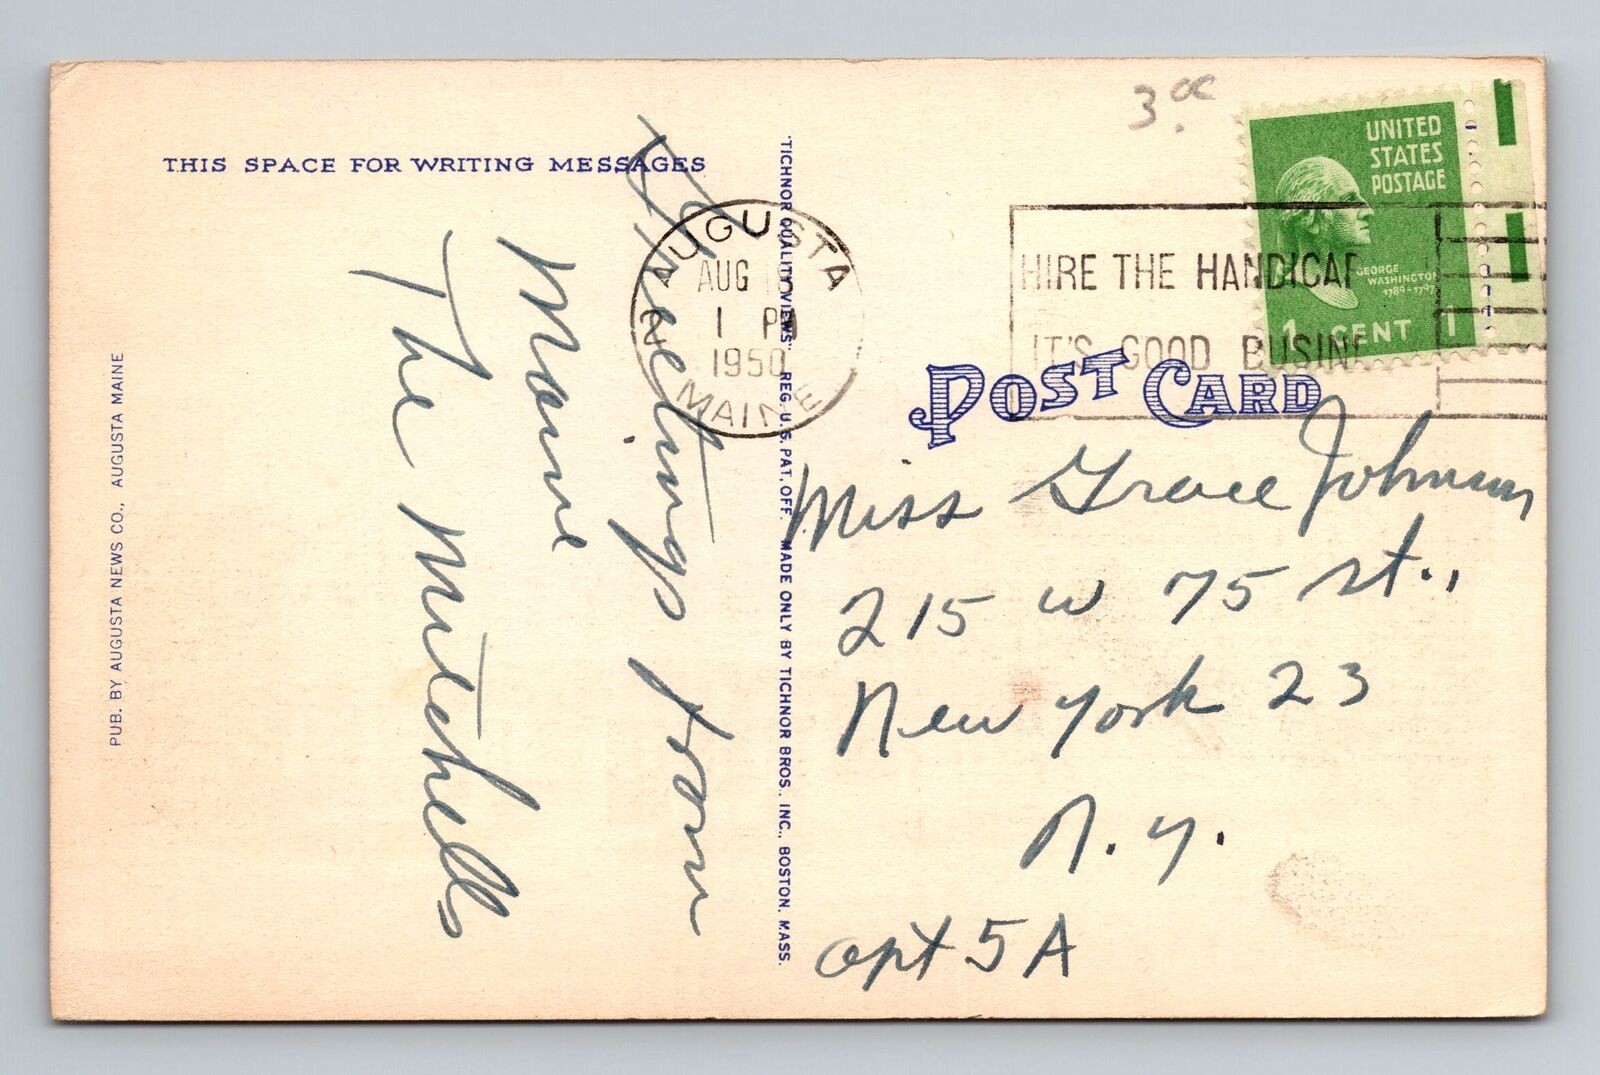 THIS SPACE FOR WRITING MESSAGES
Greetings from
Maine
The Mitchells
PUB. BY AUGUSTA NEWS CO., AUGUSTA MAINE
"TICHNOR QUALITY VIEWS," REG. U.S. PAT. OFF. MADE ONLY BY TICHNOR BROS., INC., BOSTON, MASS.
AUGUSTA
AUG
1 PM
1950
MAINE
2
3.00
HIRE THE HANDICAP
IT'S GOOD BUSINE
UNITED
STATES
POSTAGE
GEORGE
WASHINGTON
1789-1797
1 CENT 1
POST CARD
Miss Grace Johnson
215 W 75 St.,
New York 23
N.Y.
apt 5A